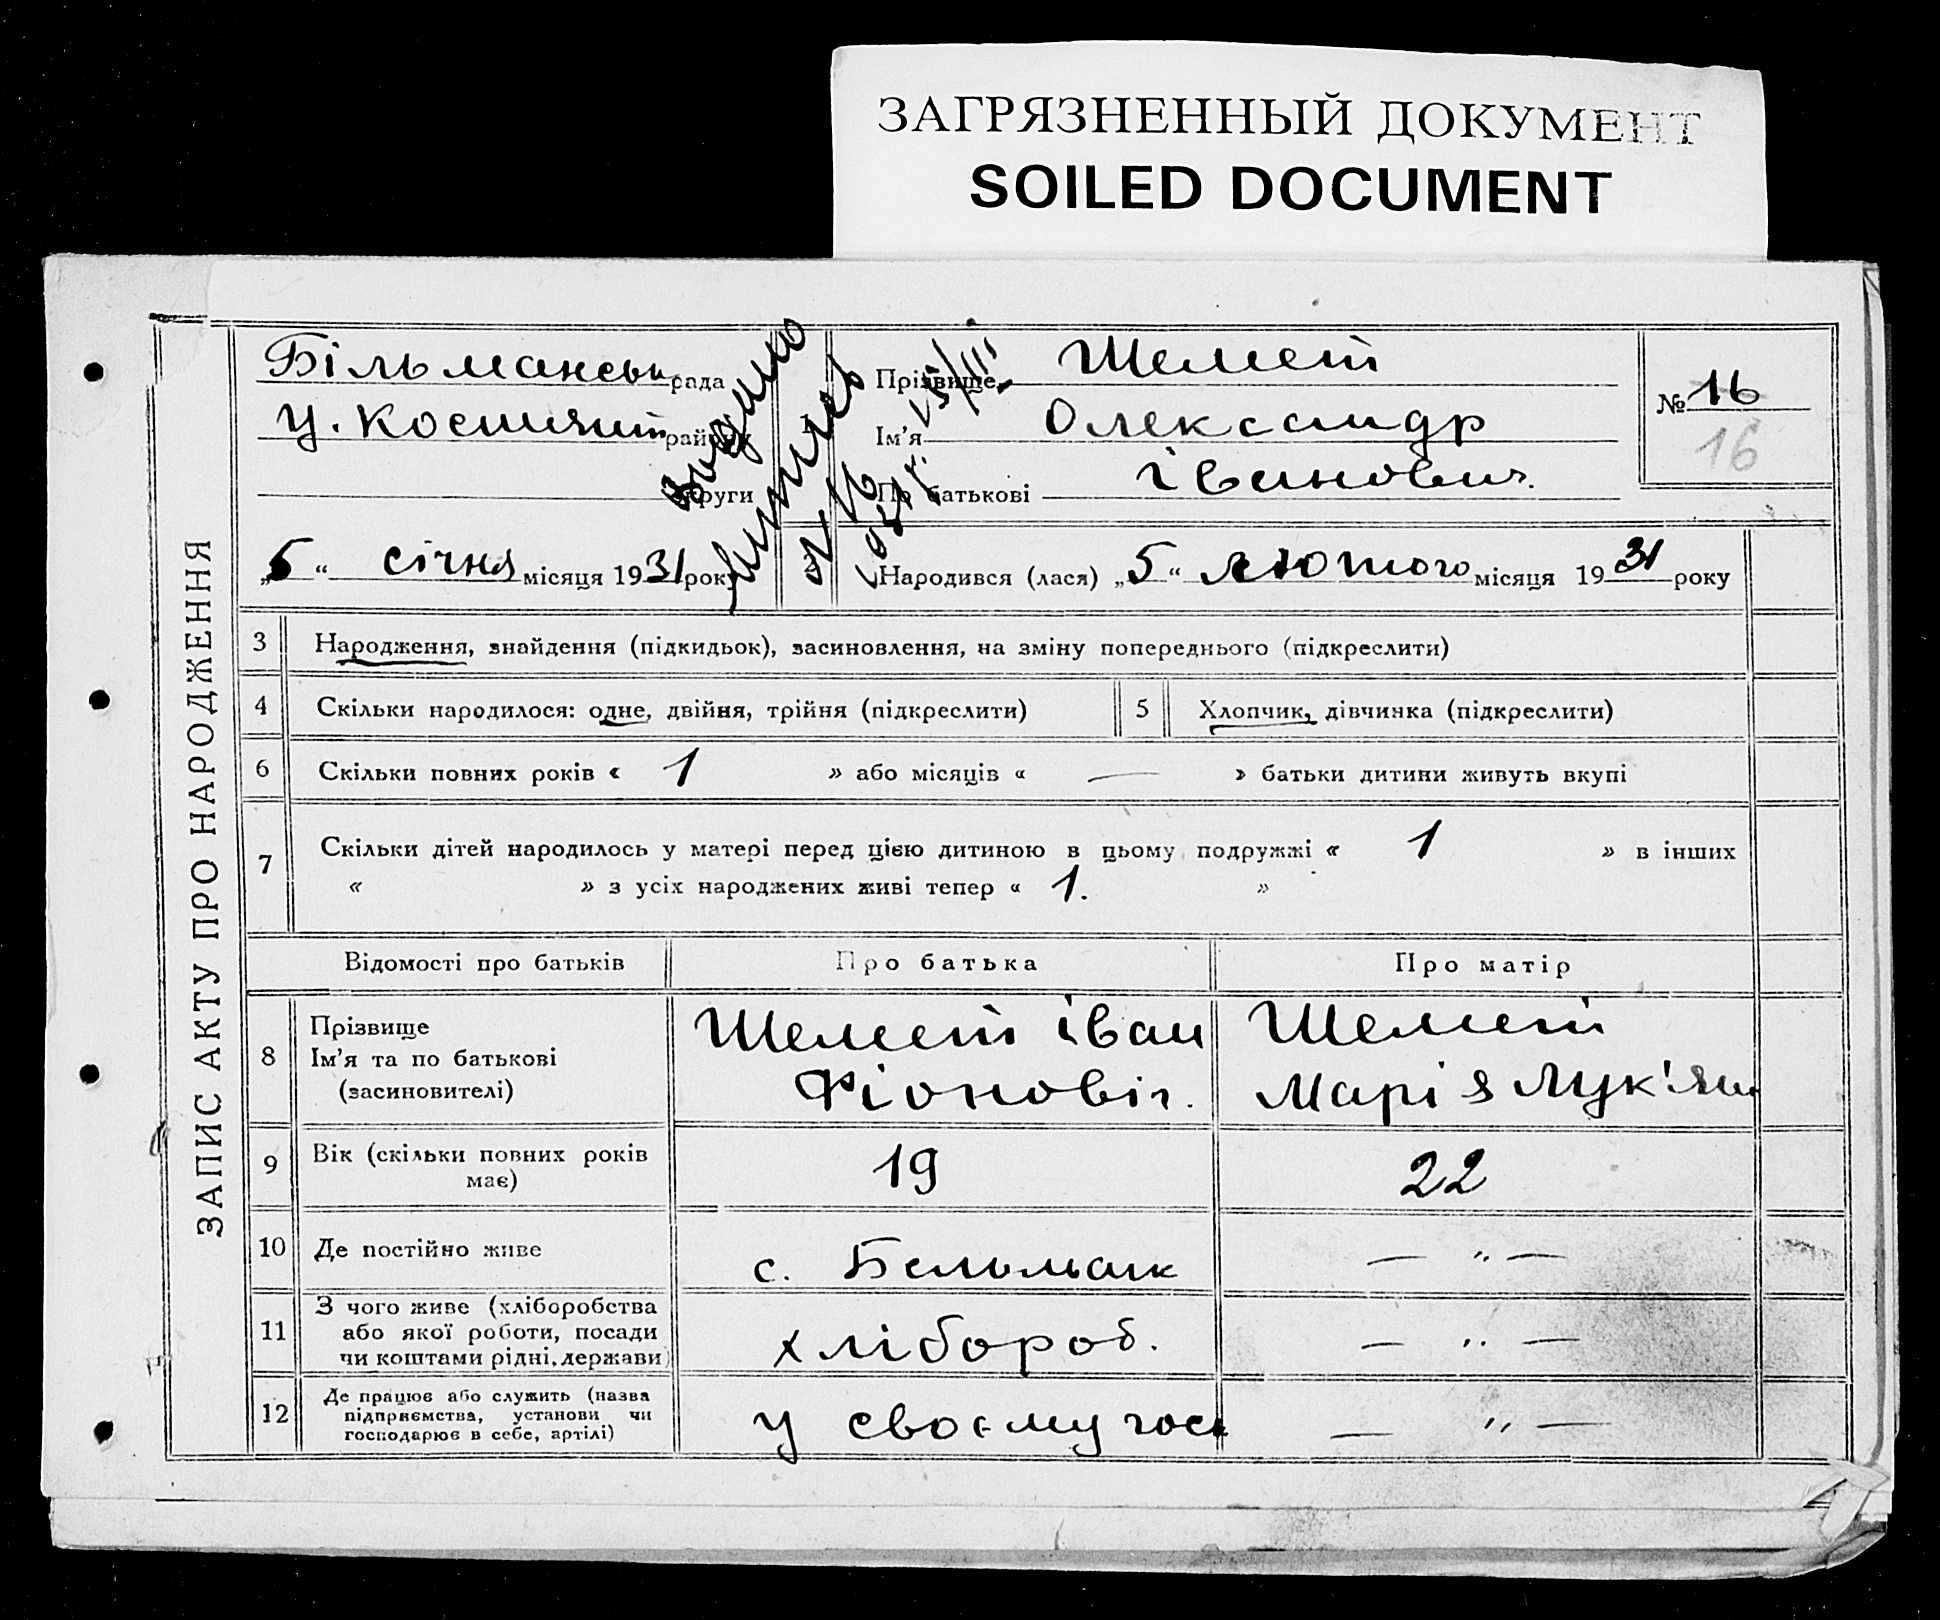 ЗАГРЯЗНЕННЫЙ ДОКУМЕНТ
SOILED DOCUMENT
ЗАПИС АКТУ ПРО НАРОДЖЕННЯ
Більманськ рада
району
округи
Прізвище Шемет
Ім'я Олександр
По батькові Іванович.
№ 16
16
„5“ січня місяця 1931 року
Народився (лася) „5“ лютого місяця 1931 року
3 Народження, знайдення (підкидьок), засиновлення, на зміну попереднього (підкреслити)
4 Скільки народилося: одне, двійня, трійня (підкреслити) 5 Хлопчик, дівчинка (підкреслити)
6 Скільки повних років « 1 » або місяців « — » батьки дитини живуть вкупі
7 Скільки дітей народилось у матері перед цією дитиною в цьому подружжі « 1 » в інших
« » з усіх народжених живі тепер « 1. »
Відомості про батьків Про батька Про матір
8 Прізвище
Ім'я та по батькові
(засиновителі)
Шемет Іван
Фіоновіч.
Шемет
Марія Лук'ян
9 Вік (скільки повних років
має)
19 22
10 Де постійно живе с. Бельмак — „ —
11 З чого живе (хліборобства
або якої роботи, посади
чи коштами рідні, держави)
хлібороб. — „ —
12 Де працює або служить (назва
підприємства, установи чи
господарює в себе, артілі)
у своєму гос — „ —